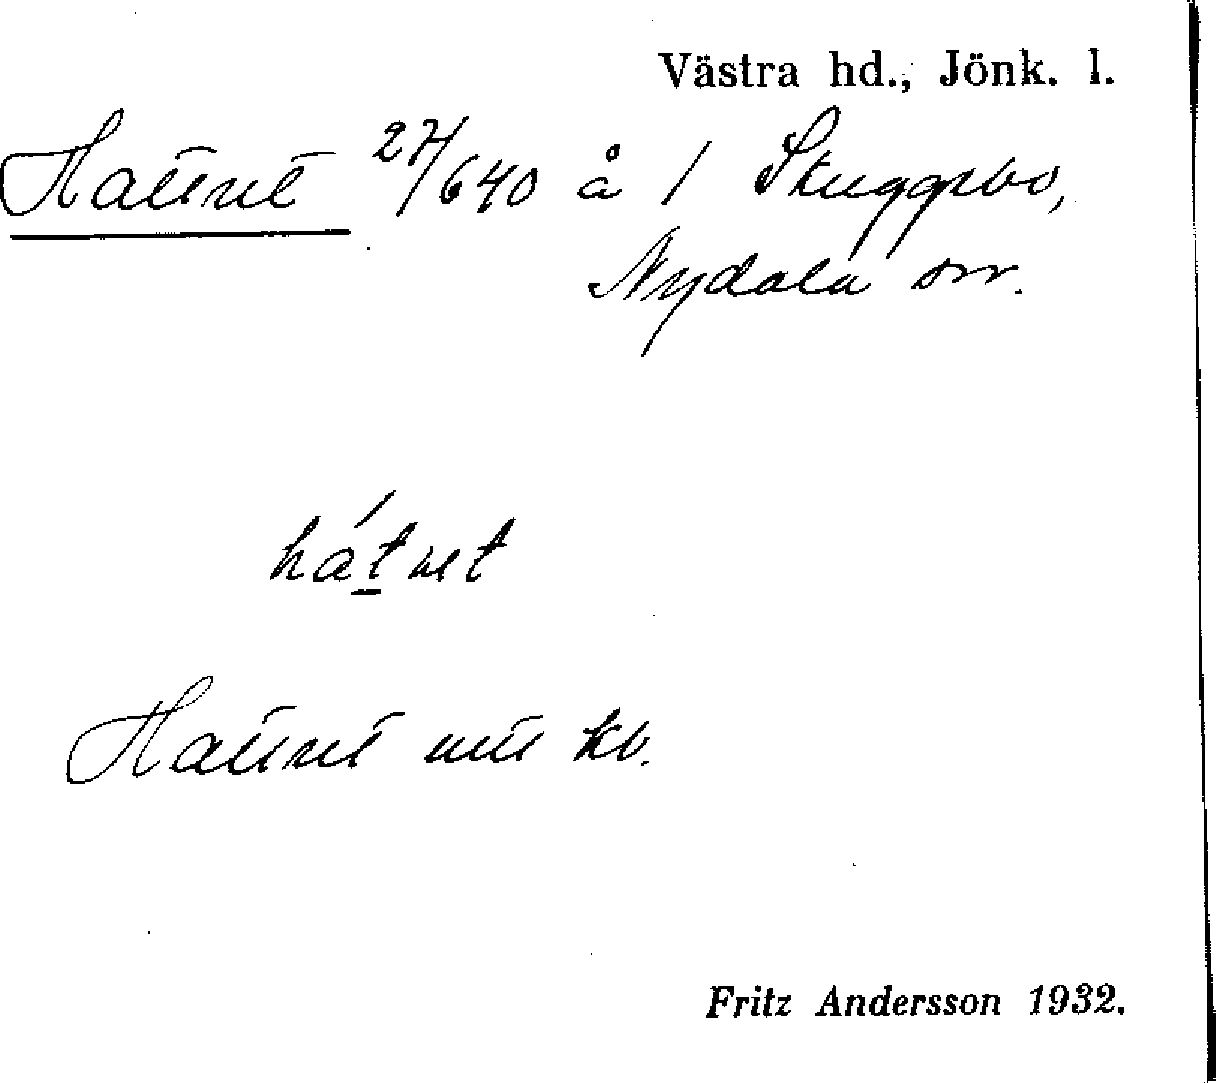 Västra hd., Jönk. l.
Hattnet 27/640 å 1 Skuggebo,
Nydala sn.
hátnet
Hattnet kb.
Fritz Andersson 1932.